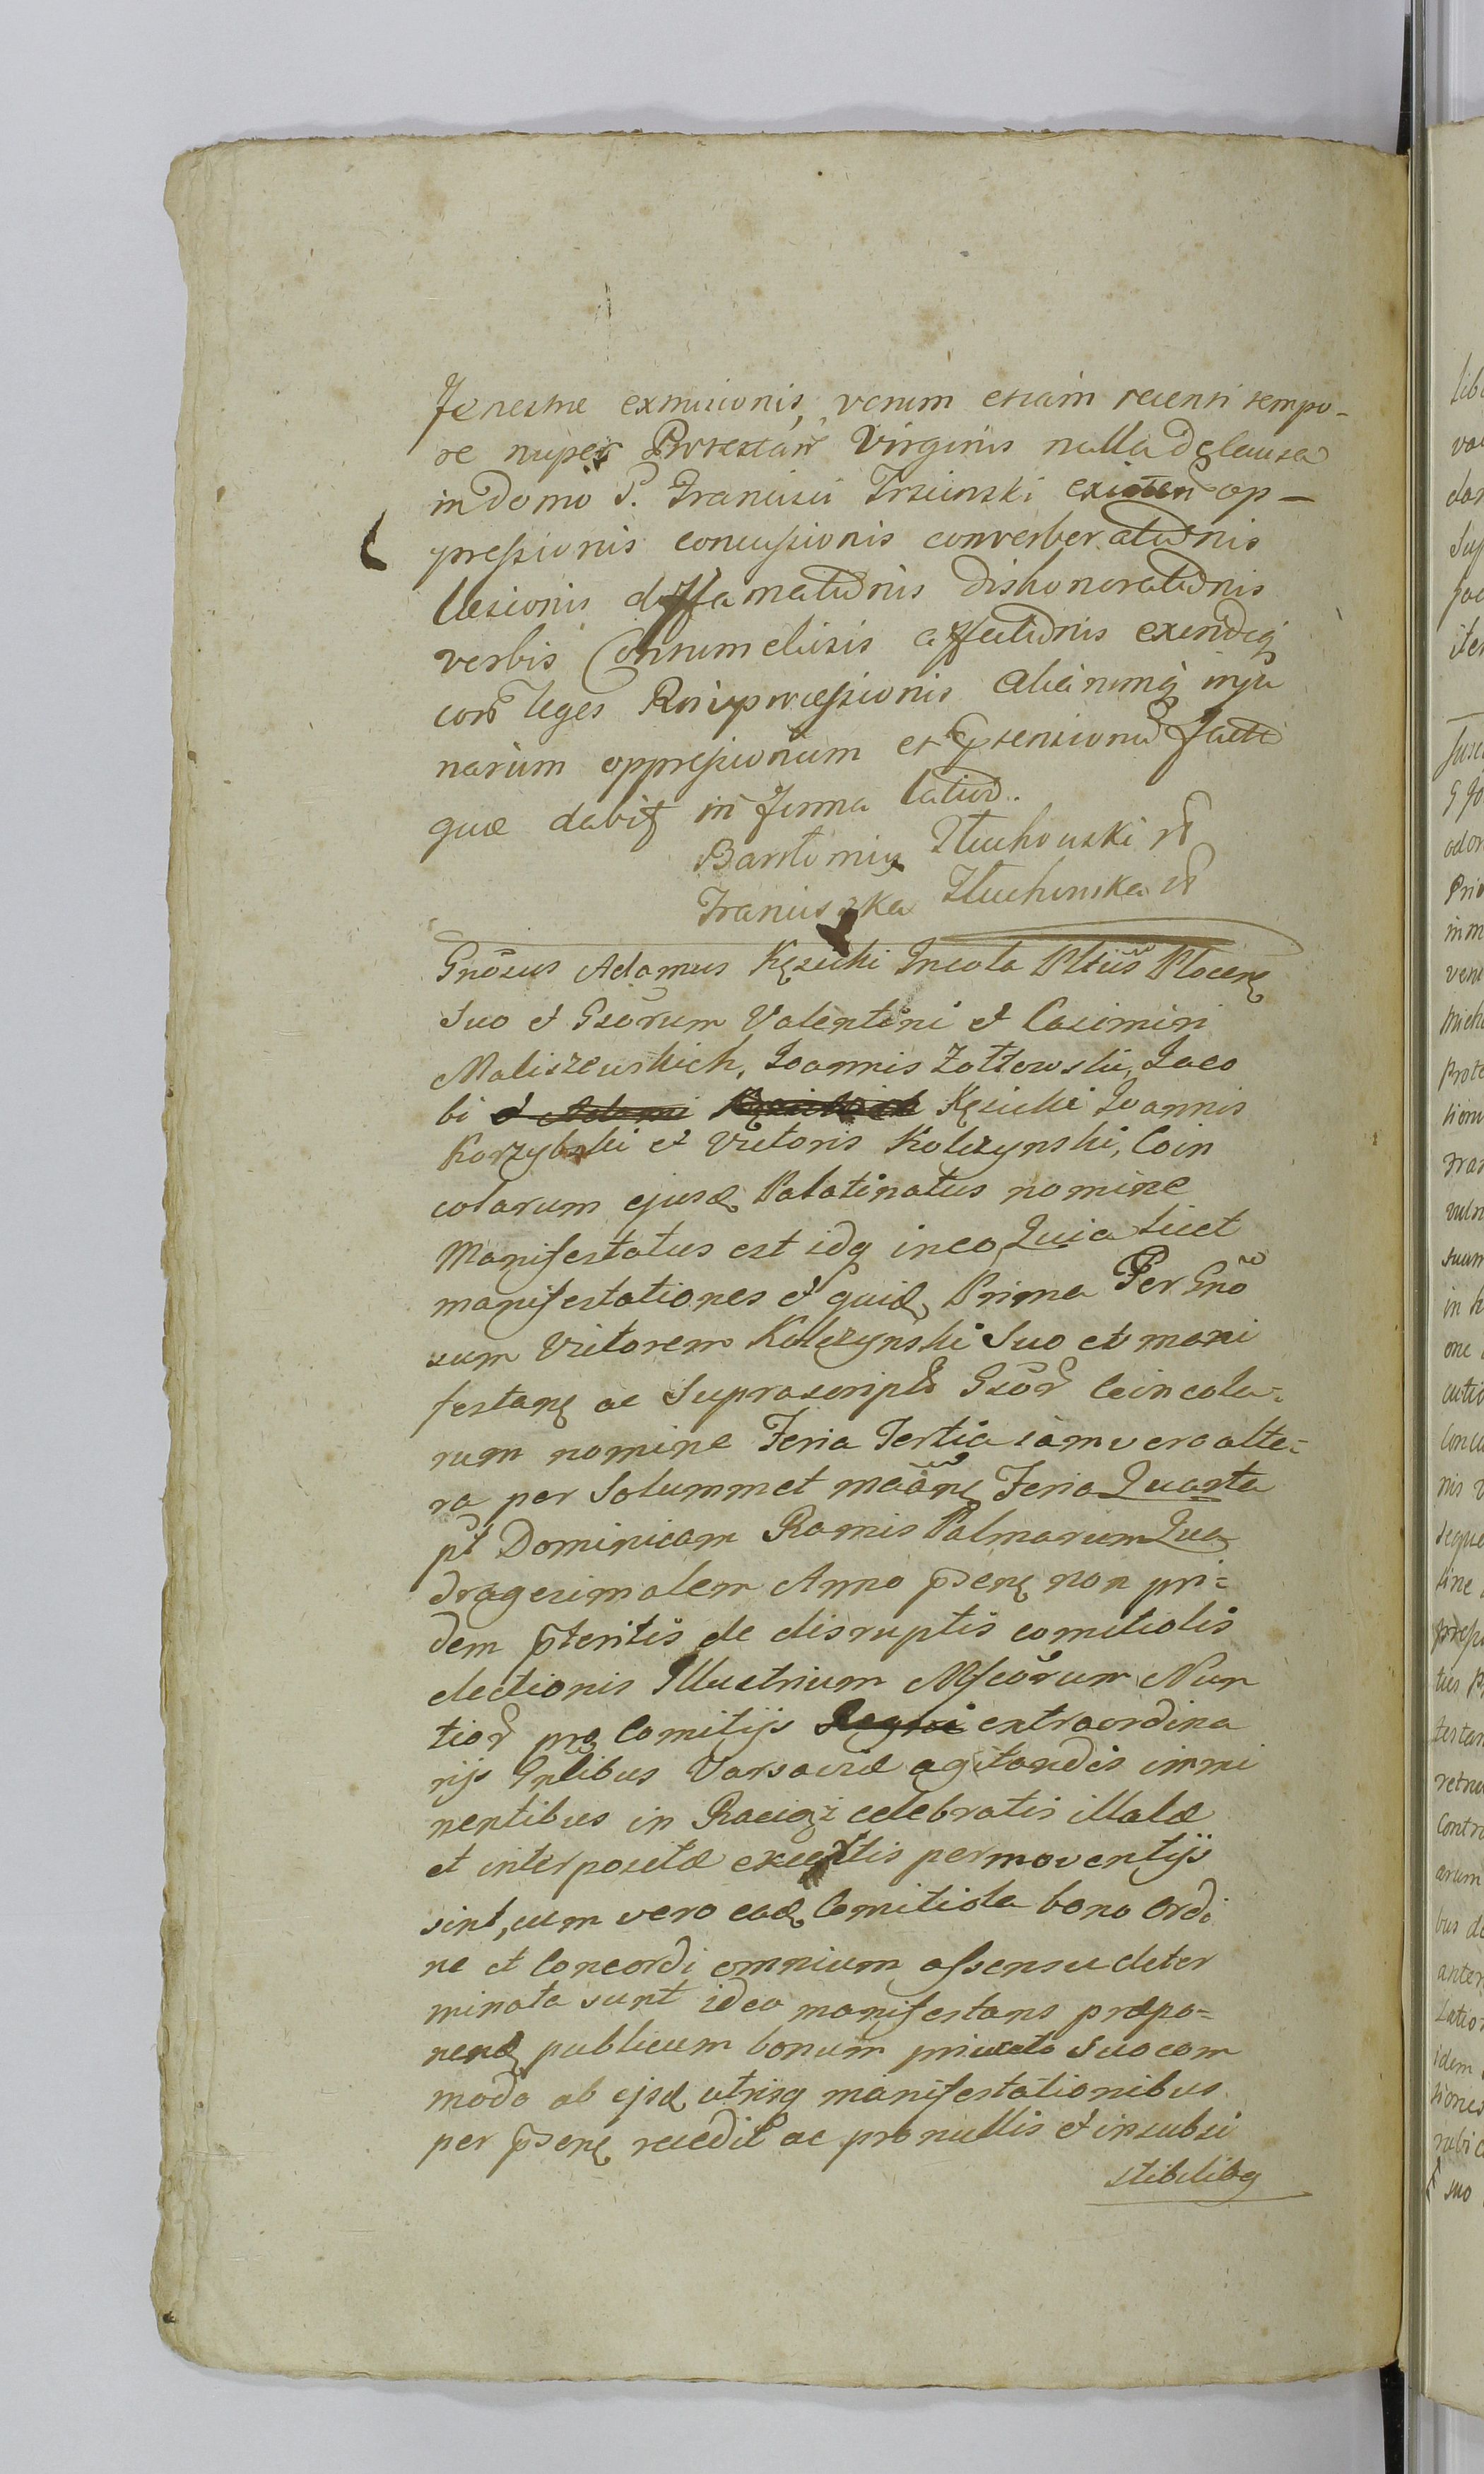 fenestrae exmissionis, verum etiam recenti tempo-
re nuper Protestan Virginis nulla de causa
in Domo P. Francisci Trzcinski existen op-
pressionis concussionis converberationis
laesionis diffamationis dishonorationis
verbis Contumeliosis affectionis exindeq
con leges processionis aliarumq inju
riarum oppressionum et Extensionu facti
quae dabit in forma latiori.
Bartłomiy Tłuchowski
Franciszka Tłuchowska
Gnosus Adamus Kęsicki Incola Pltus Plocen
Suo et Gsorum Valentini et Casimiri
Maliszewskich, Joannis Zołtowski, Jaco
bi et Adami Kęsickich Kęsicki Joannis
Korzybski et Victoris Kolczynski, Coin
colarum ejusd Palatinatus nomine
Manifestatus est idq in eo, Quia licet
manifestationes et quid Prima Per Gno
sum Victorem Kolczynski Suo et mani
festan ac Suprascript Gsor Coincola-
rum nomine Feria Tertia iam vero alte-
ra per Solummet maan Feria Quarta
pt Dominicam Ramis Palmarum Qua
dragesimalem Anno psen non pri-
dem pteritis de disruptis comitiolis
electionis Illustrium Mfcorum Nun
tior pro Comitijs Regni extraordina
rijs Gnlibus Varsaviae agitandis immi
nentibus in Raciąż celebratis illatae
et interpositae ex certis permoventijs
sint, cum vero ead Comitiola bono Ordi
ne et Concordi omnium assensu deter
minata sunt ideo manifestans praepo-
nend publicum bonum privato suo com
modo ab ejsd utrisq manifestationibus
per psen recedit ac pro nullis et insubsi
stibilibq